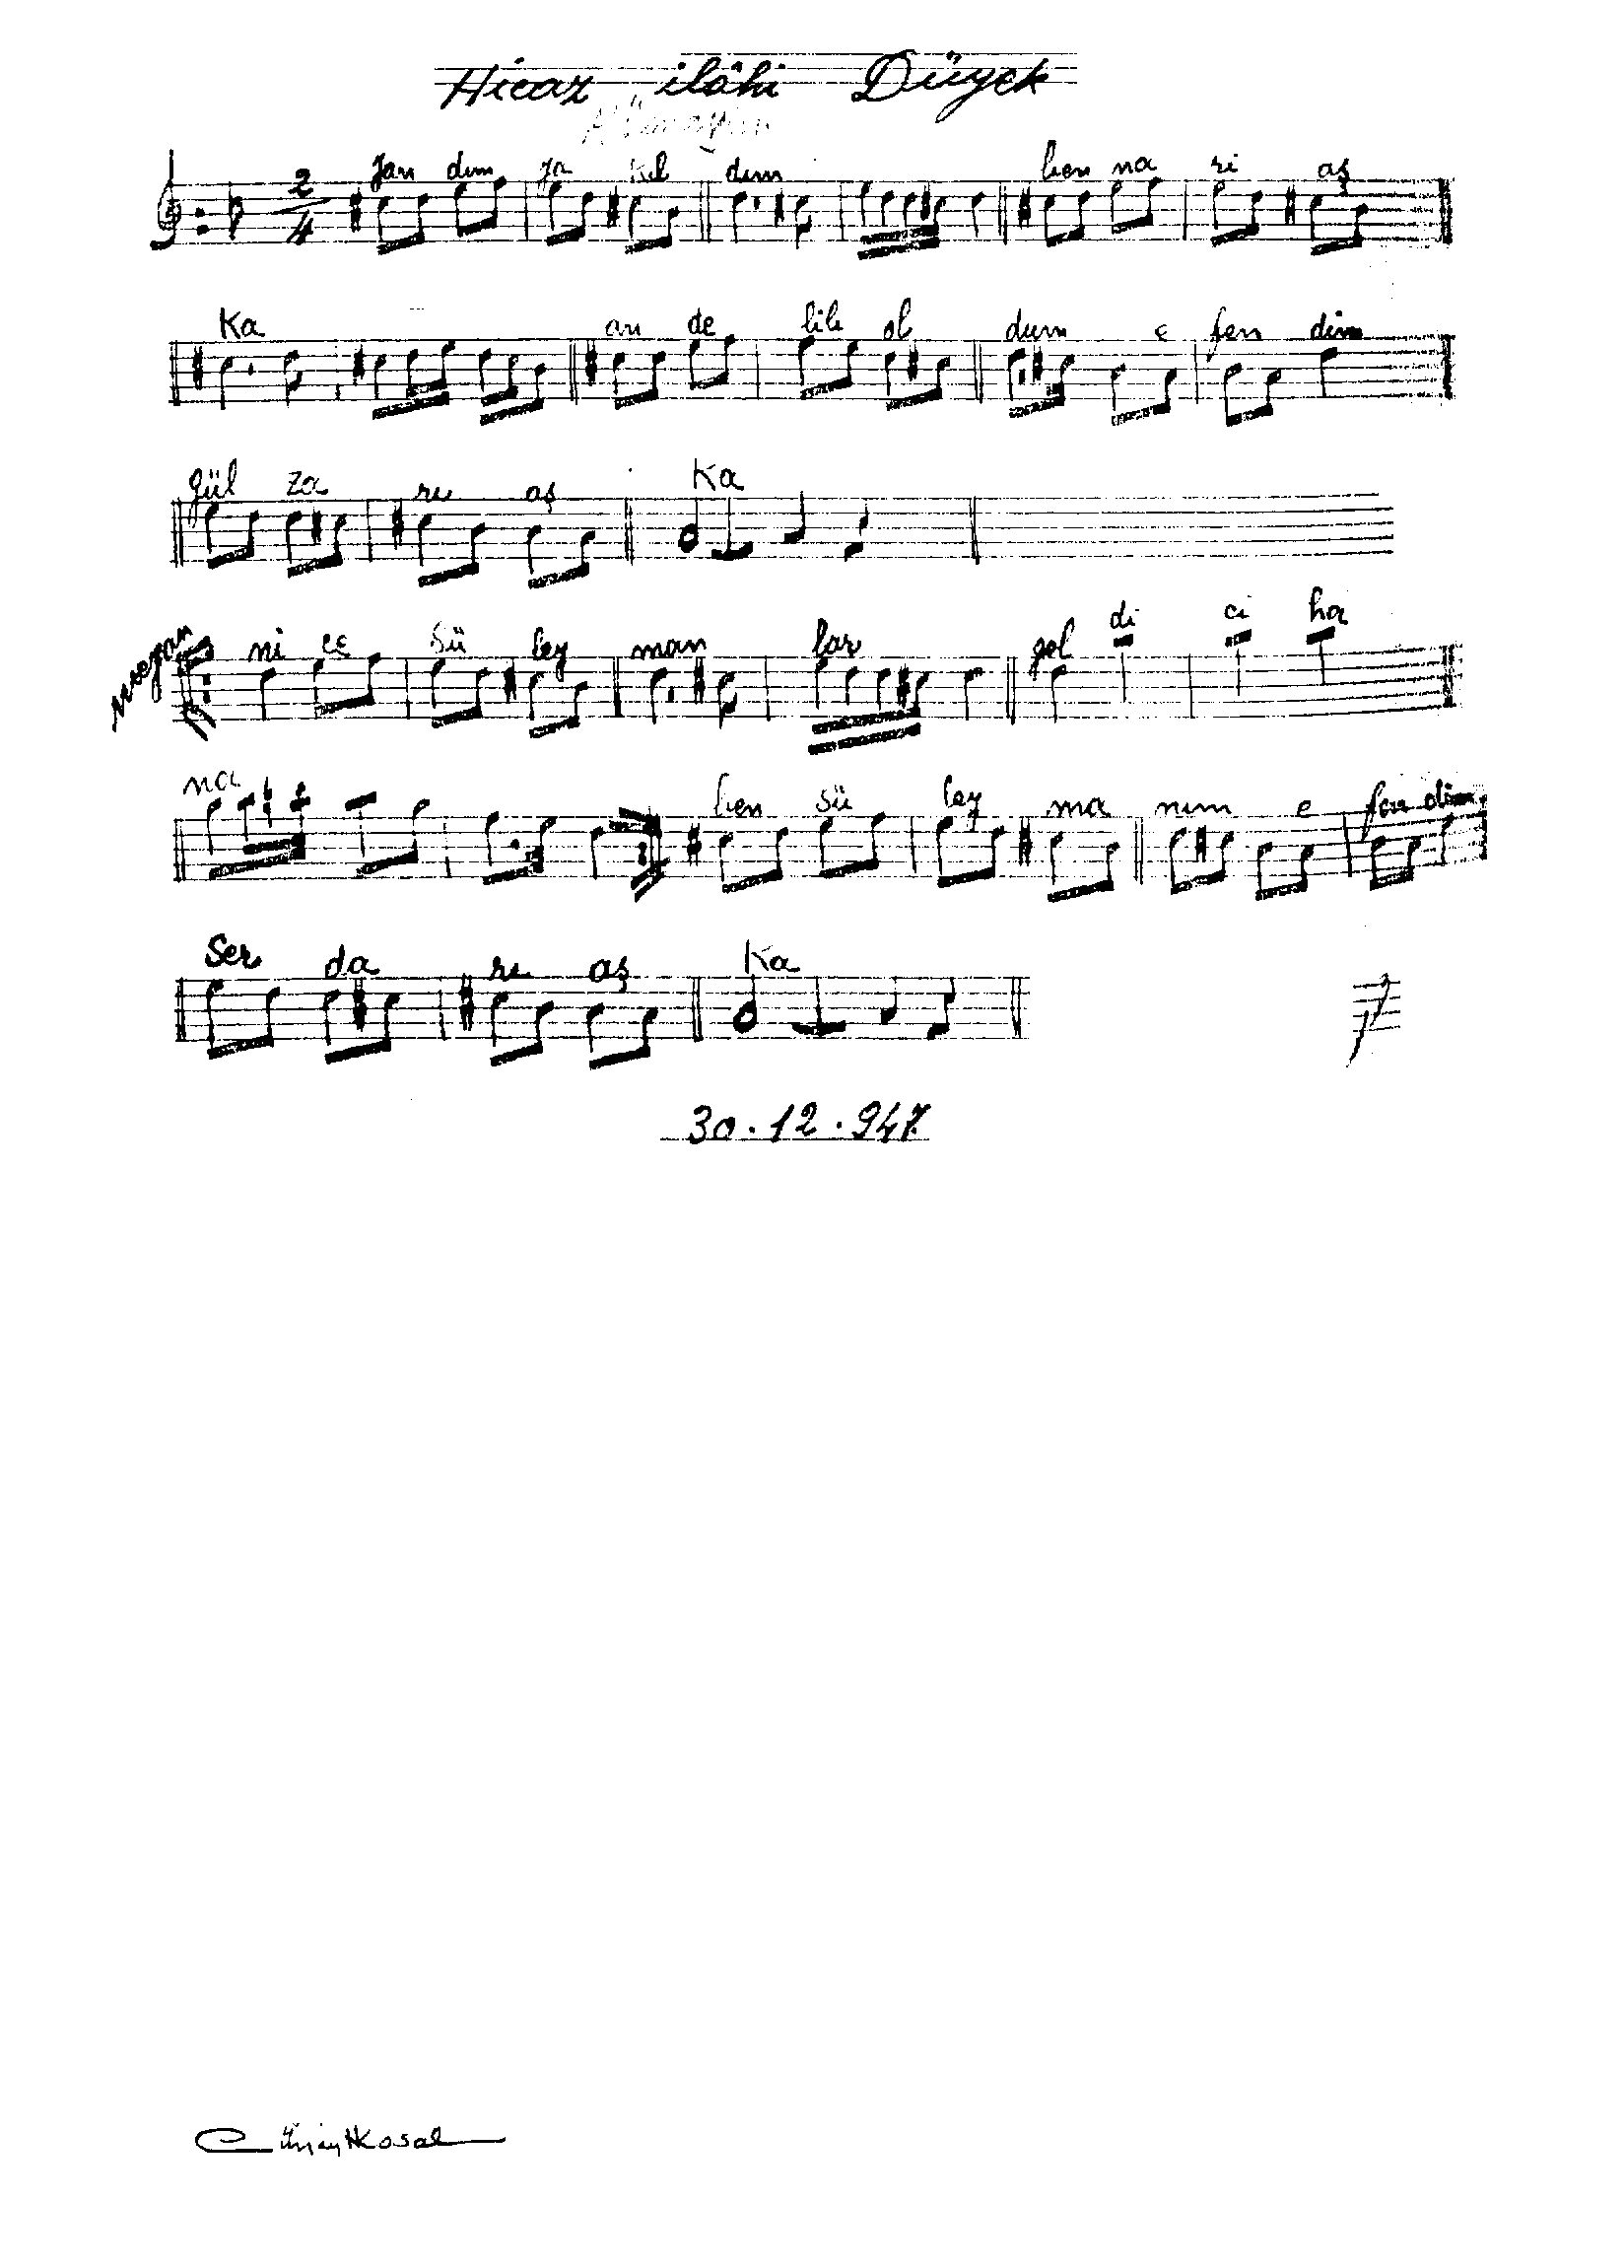 Hicaz ilâhi Düyek
2/4
Yan dım ya kıl dım ben na ri aş
Ka an de lib ol dum e fen dim
gül za re aş Ka
ni ce Sü ley man lar gel di ci ha
na ben sü ley ma nım e fen dim
Ser da re aş Ka
30.12.947